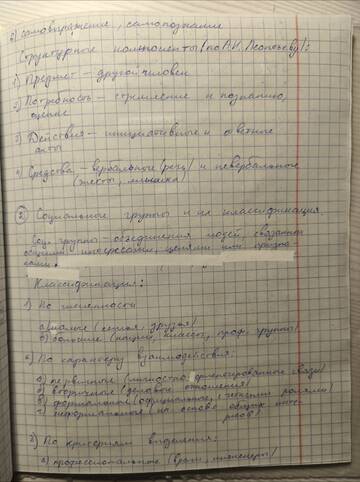 г) самовыражение, самопознание
Структурные компоненты (по А.Н. Леонтьеву):
1) Предмет – другой человек
2) Потребность – стремление к познанию,
оценке
3) Действия – инициативные и ответные
акты
4) Средства – вербальные (речь) и невербальные
(жесты, мимика)
② Социальные группы и их классификация
Соц. группы – объединения людей, связанные
общими интересами, целями или признаками.
Классификация:
1) По численности
а) малые (семья, друзья)
б) большие (нации, классы, проф. группы)
2) По характеру взаимодействия:
а) первичные (личностно-ориентированные связи)
б) вторичные (деловые отношения)
в) формальные (официальные, с четкими ролями)
г) неформальные (на основе общих интересов)
3) По критериям выделения:
а) профессиональные (врачи, инженеры)